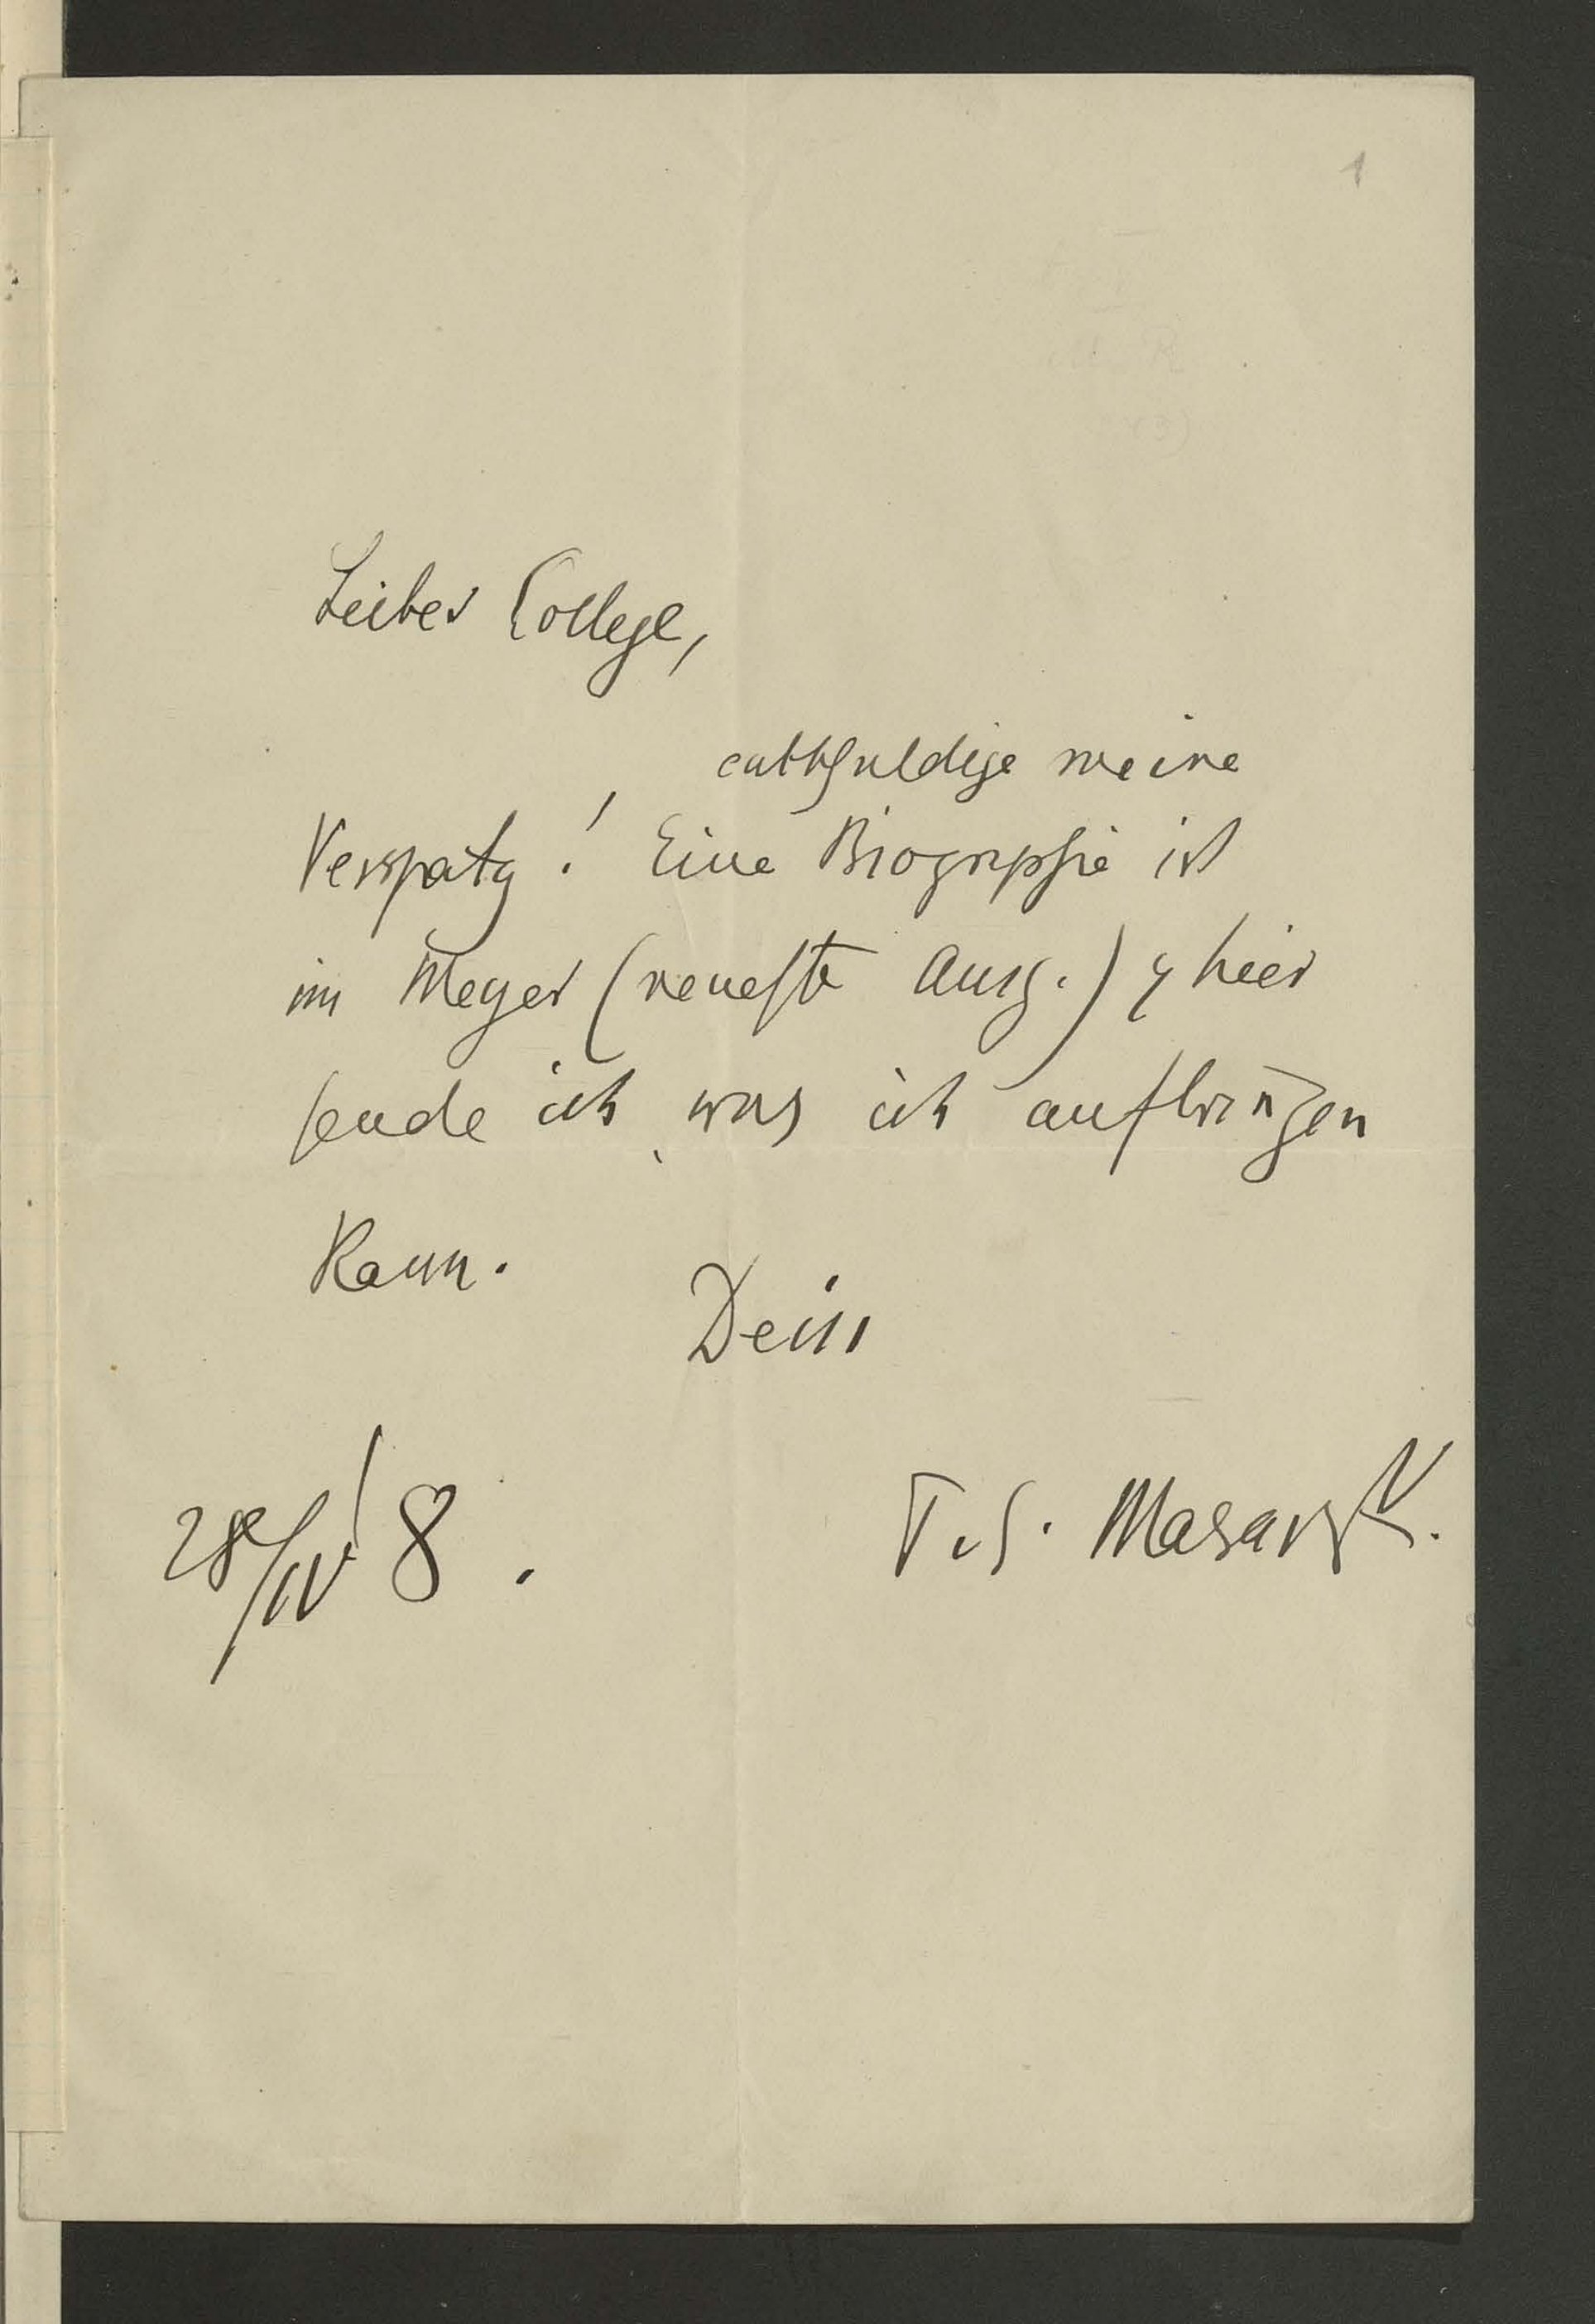 1
Lieber College,
entschuldige meine
Verspätg! Eine Biographie ist
im Meyer (neueste Ausg.) & hier
sende ich, was ich aufbringen
kann.
Dein
28/IV 8.
T. G. Masaryk.